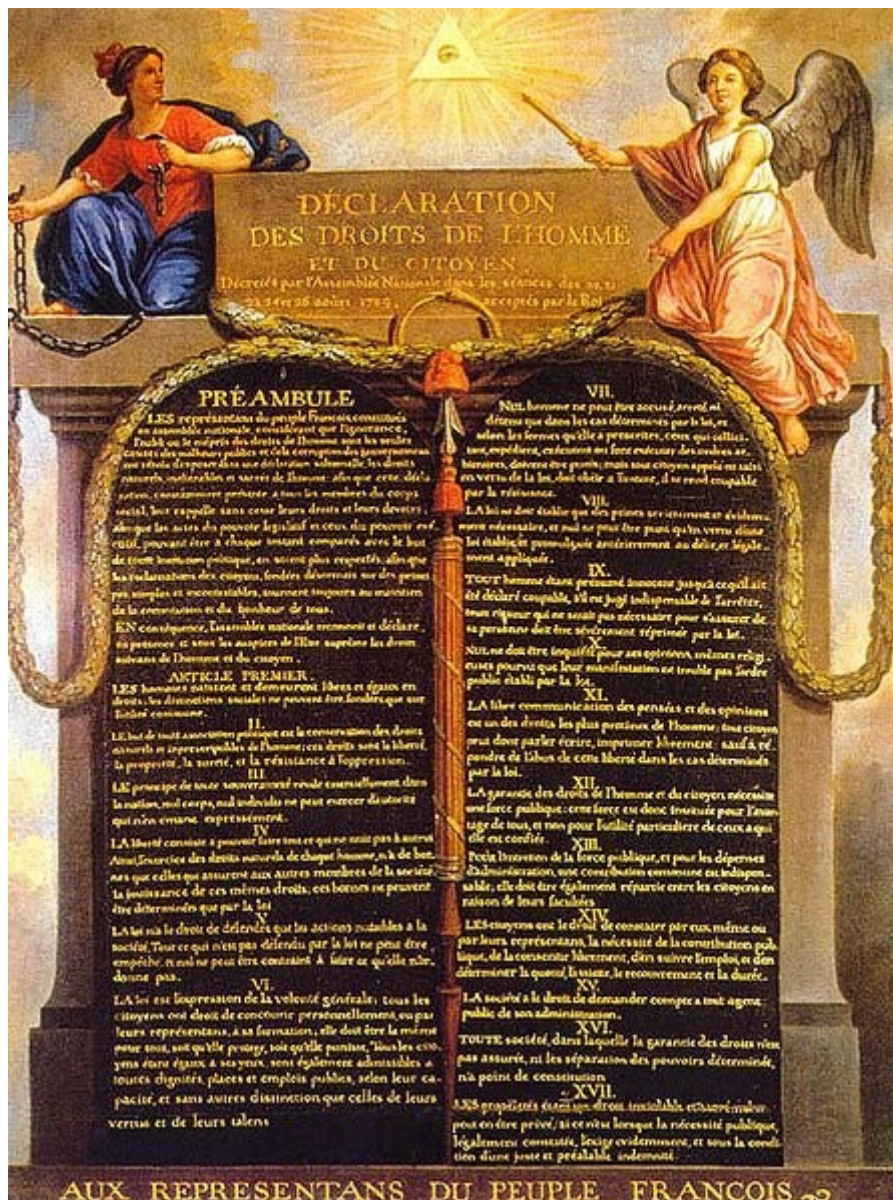 DÉCLARATION
DES DROITS DE L'HOMME
ET DU CITOYEN
Décretés par l'Assemblée Nationale dans les séances des 20, 21
23, 24 et 26 aoûst 1789, acceptés par le Roi
PRÉAMBULE
LES représentans du peuple François constitués
en assemblée nationale, considérant que l'ignorance,
l'oubli ou le mépris des droits de l'homme sont les seules
causes des malheurs publics et de la corruption des gouvernemens
ont résolu d'exposer dans une déclaration solemnelle, les droits
naturels, inaliénables et sacrés de l'homme: afin que cette décla
ration, constamment présente a tous les membres du corps
social, leur rappelle sans cesse leurs droits et leurs devoirs
afin que les actes du pouvoir législatif et ceux du pouvoir exé
cutif, pouvant être a chaque instant comparés avec le but
de toute institution politique, en soient plus respectés; afin que
les réclamations des citoyens, fondées désormais sur des princi
pes simples et incontestables, tournent toujours au maintien
de la constitution et du bonheur de tous.
EN conséquence, l'assemblée nationale reconnoit et déclare
en présence et sous les auspices de l'Etre suprême les droits
suivans de l'homme et du citoyen.
ARTICLE PREMIER.
LES hommes naissent et demeurent libres et égaux en
droits. les distinctions sociales ne peuvent être fondées que sur
l'utilité commune.
II.
LE but de toute association politique est la conservation des droits
naturels et imprescriptibles de l'homme; ces droits sont la liberté,
la propriété, la sureté, et la résistance à l'oppression.
III.
LE principe de toute souveraineté réside essentiellement dans
la nation, nul corps, nul individu ne peut exercer d'autorité
qui n'en emane expressément.
IV.
LA liberté consiste a pouvoir faire tout ce qui ne nuit pas à autrui
Ainsi, l'exercice des droits naturels de chaque homme, n'a de bor-
nes que celles qui assurent aux autres membres de la société
la jouissance de ces mêmes droits; ces bornes ne peuvent
être déterminées que par la loi
V.
LA loi n'a le droit de défendre que les actions nuisibles à la
société. Tout ce qui n'est pas défendu par la loi ne peut être
empêché, et nul ne peut être contraint à faire ce qu'elle n'or-
donne pas.
VI.
LA loi est l'expression de la volonté générale; tous les
citoyens ont droit de concourir personnellement, ou par
leurs représentans, à sa formation; elle doit être la même
pour tous, soit qu'elle protege, soit qu'elle punisse. Tous les cito-
yens étant égaux à ses yeux, sont également admissibles a
toutes dignités, places et emplois publics, selon leur ca-
pacité, et sans autres distinction que celles de leurs
vertus et de leurs talens
VII.
NUL homme ne peut être accusé, arreté, ni
détenu que dans les cas déterminés par la loi, et
selon les formes qu'elle a prescrites, ceux qui sollici-
tent, expédient, exécutent ou font exécuter des ordres ar-
bitraires, doivent être punis; mais tout citoyen appelé ou saisi
en vertu de la loi, doit obéir a l'instant, il se rend coupable
par la résistance.
VIII.
LA loi ne doit établir que des peines strictement et évidem-
ment nécessaire, et nul ne peut être puni qu'en vertu d'une
loi établie et promulguée antérieurement au délit, et légale
ment appliquée.
IX.
TOUT homme étant présumé innocent jusqu'à ce qu'il ait
été déclaré coupable, s'il est jugé indispensable de l'arrêter,
toute rigueur qui ne serait pas nécessaire pour s'assurer de
sa personne doit être sévèrement réprimée par la loi.
X.
NUL ne doit être inquiété pour ses opinions, mêmes religi
euses pourvu que leur manifestation ne trouble pas l'ordre
public établi par la loi.
XI.
LA libre communication des pensées et des opinions
est un des droits les plus précieux de l'homme; tout citoyen
peut donc parler écrire, imprimer librement: sauf à ré
pondre de l'abus de cette liberté dans les cas déterminés
par la loi.
XII.
LA garantie des droits de l'homme et du citoyen nécessite
une force publique: cette force est donc instituée pour l'avan
tage de tous, et non pour l'utilité particuliere de ceux a qui
elle est confiée.
XIII.
Pour l'entretien de la force publique, et pour les dépenses
d'administration, une contribution commune est indispen-
sable; elle doit être également répartie entre les citoyens en
raison de leurs facultées
XIV.
LES citoyens ont le droit de constater par eux même ou
par leurs représentans, la nécessité de la contribution pub-
lique, de la consentir librement, d'en suivre l'emploi, et d'en
déterminer la quotité, l'assiette, le recouvrement et la durée.
XV.
LA société a le droit de demander compte a tout agent
public de son administration.
XVI.
TOUTE société, dans laquelle la garantie des droits n'est
pas assurée, ni les séparation des pouvoirs déterminée,
n'a point de constitution
XVII.
LES propriétés étant un droit inviolable et sacré, nul ne
peut en être privé, si ce n'est lorsque la nécessité publique,
légalement constatée, l'exige evidemment, et sous la condi-
tion d'une juste et préalable indemnité.
AUX REPRESENTANS DU PEUPLE FRANCOIS